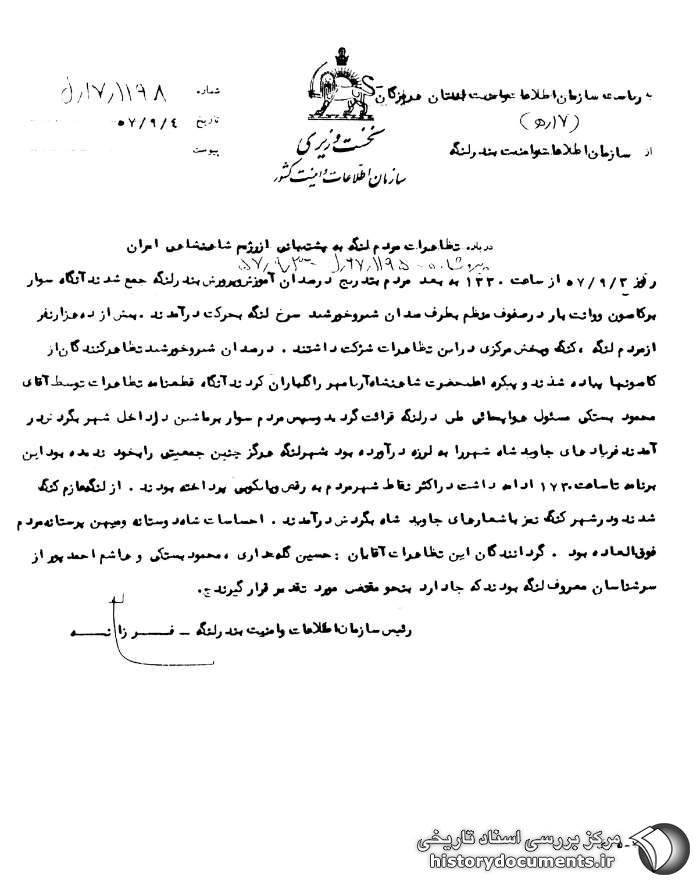 به ریاست سازمان اطلاعات و امنیت استان هرمزگان
(۱۷ه‍)
از سازمان اطلاعات و امنیت بندرلنگه
نخست وزیری
سازمان اطلاعات و امنیت کشور
شماره ۱۱۹۸/۱۷ل
تاریخ ۵۷/۹/۴
پیوست
درباره تظاهرات مردم لنگه به پشتیبانی از رژیم شاهنشاهی ایران
پیرو شماره ۱۱۹۵/۱۷ل
روز ۵۷/۹/۲ از ساعت ۱۳۳۰ به بعد مردم بتدریج در میدان آموزش و پرورش بندرلنگه جمع شدند آنگاه سوار
بر کامیون و وانت بار در صفوف منظم بطرف میدان شیر و خورشید سرخ لنگه بحرکت درآمدند . بیش از ده هزار نفر
از مردم لنگه ، کنگ و بخش مرکزی در این تظاهرات شرکت داشتند . در میدان شیر و خورشید تظاهر کنندگان از
کامیونها پیاده شدند و پیکره اعلیحضرت شاهنشاه آریامهر را گلباران کردند آنگاه قطعنامه تظاهرات توسط آقای
محمود بستکی مسئول هواپیمائی ملی در لنگه قرائت گردید وسپس مردم سوار بر ماشین در داخل شهر بگردش در
آمدند فریاد های جاوید شاه شهر را به لرزه درآورده بود شهر لنگه هرگز چنین جمعیتی را بخود ندیده بود این
برنامه تا ساعت ۱۷۳۰ ادامه داشت در اکثر نقاط شهر مردم به رقص و پایکوبی پرداخته بودند . از لنگه عازم کنگ
شدند و در شهر کنگ نیز با شعارهای جاوید شاه بگردش درآمدند . احساسات شاه دوستانه و میهن پرستانه مردم
فوق العاده بود . گردانندگان این تظاهرات آقایان : حسین گله داری ، محمود بستکی و هاشم احمد پور از
سرشناسان معروف لنگه بودند که جا دارد بنحو مقتضی مورد تقدیر قرار گیرند ج.
رئیس سازمان اطلاعات و امنیت بندرلنگه ـ فـــرزانـــه
مرکز بررسی اسناد تاریخی
historydocuments.ir